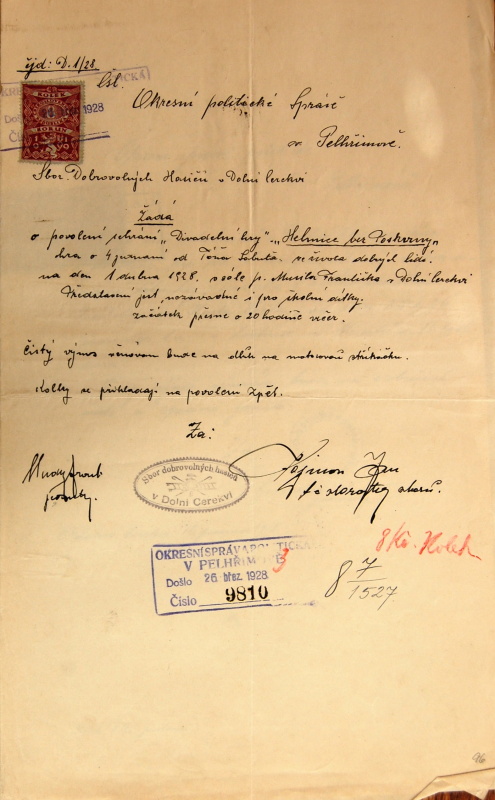 čjd: D. 1/28.
OKRESNÍ SPRÁVA POLITICKÁ
Došlo 1928
KOLEK
KORUN
Čsl.
Okresní politické Správě
v Pelhřimově.
Sbor Dobrovolných Hasičů v Dolní Cerekvi
Žádá
o povolení sehrání „Divadelní hry" „Helmice bez Poskvrny"
hra o 4 jednání od ze života dobrých lidí.
na den 1 dubna 1928, v sále p. Františka v Dolní Cerekvi
Představení jest nezávadné i pro školní dítky.
začátek přesně o 20 hodině večer.
Čistý výnos věnován bude na dluh na motorovou stříkačku.
Kolky se přikládají na povolení zpět.
Za:
Sbor dobrovolných hasičů
v Dolní Cerekvi
Jan
t.č. starosta sboru.
8 Kč. Kolek
OKRESNÍ SPRÁVA POLITICKÁ
V PELHŘIMOVĚ 3
Došlo 26. břez. 1928
Číslo 9810
8 7/1527
96